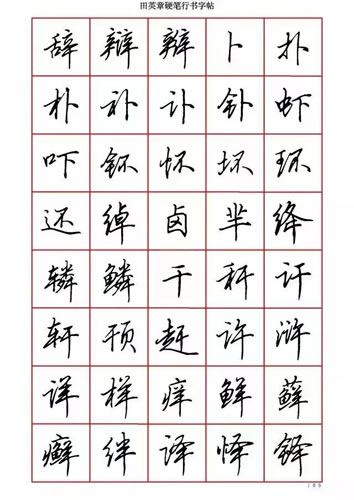 田英章硬笔行书字帖
辞 卜 扑
朴 补 讣 钋 虾
吓 钚 怀 坏 环
还 绰 卤 芈 绛
辚 鳞 干 秆 讦
轩 顸 赶 许 浒
详 样 痒 鲜 藓
癣 绊 译 怿 铎